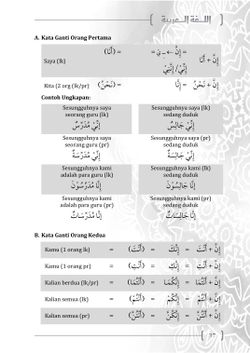 اللغة العربية
A. Kata Ganti Orang Pertama
Saya (lk)
إِنَّ + أَنَا = إِنَّ ← ـِيْ = (أَنَا)
إِنِّيْ / إِنَّنِيْ
Kita (2 org (lk/pr) إِنَّ + نَحْنُ = إِنَّا = (نَحْنُ)
Contoh Ungkapan:
Sesungguhnya saya seorang guru (lk)
إِنِّيْ مُدَرِّسٌ
Sesungguhnya saya (lk) sedang duduk
إِنِّيْ جَالِسٌ
Sesungguhnya saya seorang guru (pr)
إِنِّيْ مُدَرِّسَةٌ
Sesungguhnya saya (pr) sedang duduk
إِنِّيْ جَالِسَةٌ
Sesungguhnya kami adalah para guru (lk)
إِنَّا مُدَرِّسُوْنَ
Sesungguhnya kami (lk) sedang duduk
إِنَّا جَالِسُوْنَ
Sesungguhnya kami adalah para guru (pr)
إِنَّا مُدَرِّسَاتٌ
Sesungguhnya kami (pr) sedang duduk
إِنَّا جَالِسَاتٌ
B. Kata Ganti Orang Kedua
Kamu (1 orang lk) = (أَنْتَ) = إِنَّكَ = إِنَّ + أَنْتَ
Kamu (1 orang pr) = (أَنْتِ) = إِنَّكِ = إِنَّ + أَنْتِ
Kalian berdua (lk/pr) = (أَنْتُمَا) = إِنَّكُمَا = إِنَّ + أَنْتُمَا
Kalian semua (lk) = (أَنْتُمْ) = إِنَّكُمْ = إِنَّ + أَنْتُمْ
Kalian semua (pr) = (أَنْتُنَّ) = إِنَّكُنَّ = إِنَّ + أَنْتُنَّ